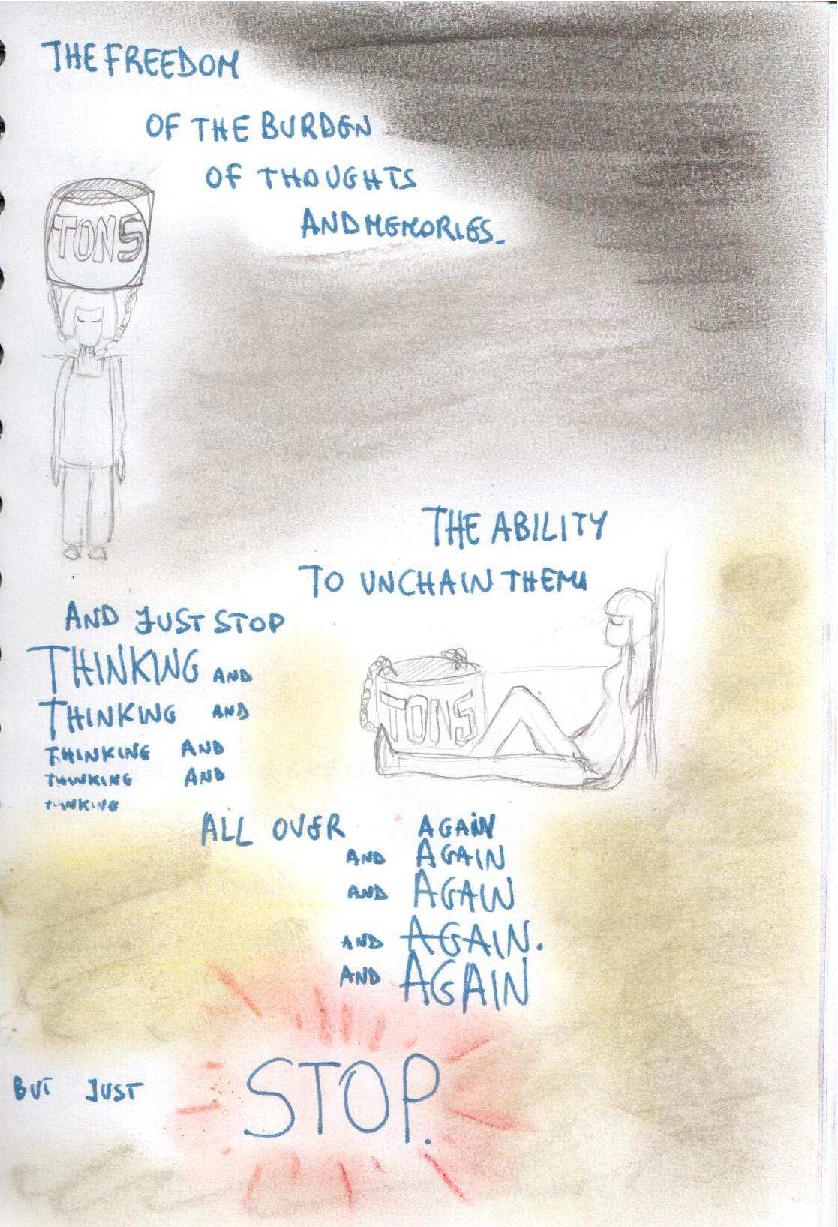 THE FREEDOM
OF THE BURDEN
OF THOUGHTS
AND MEMORIES.
TONS
THE ABILITY
TO UNCHAIN THEM
AND JUST STOP
THINKING AND
THINKING AND
THINKING AND
THINKING AND
THINKING
TONS
ALL OVER AGAIN
AND AGAIN
AND AGAIN
AND AGAIN.
AND AGAIN
BUT JUST STOP.